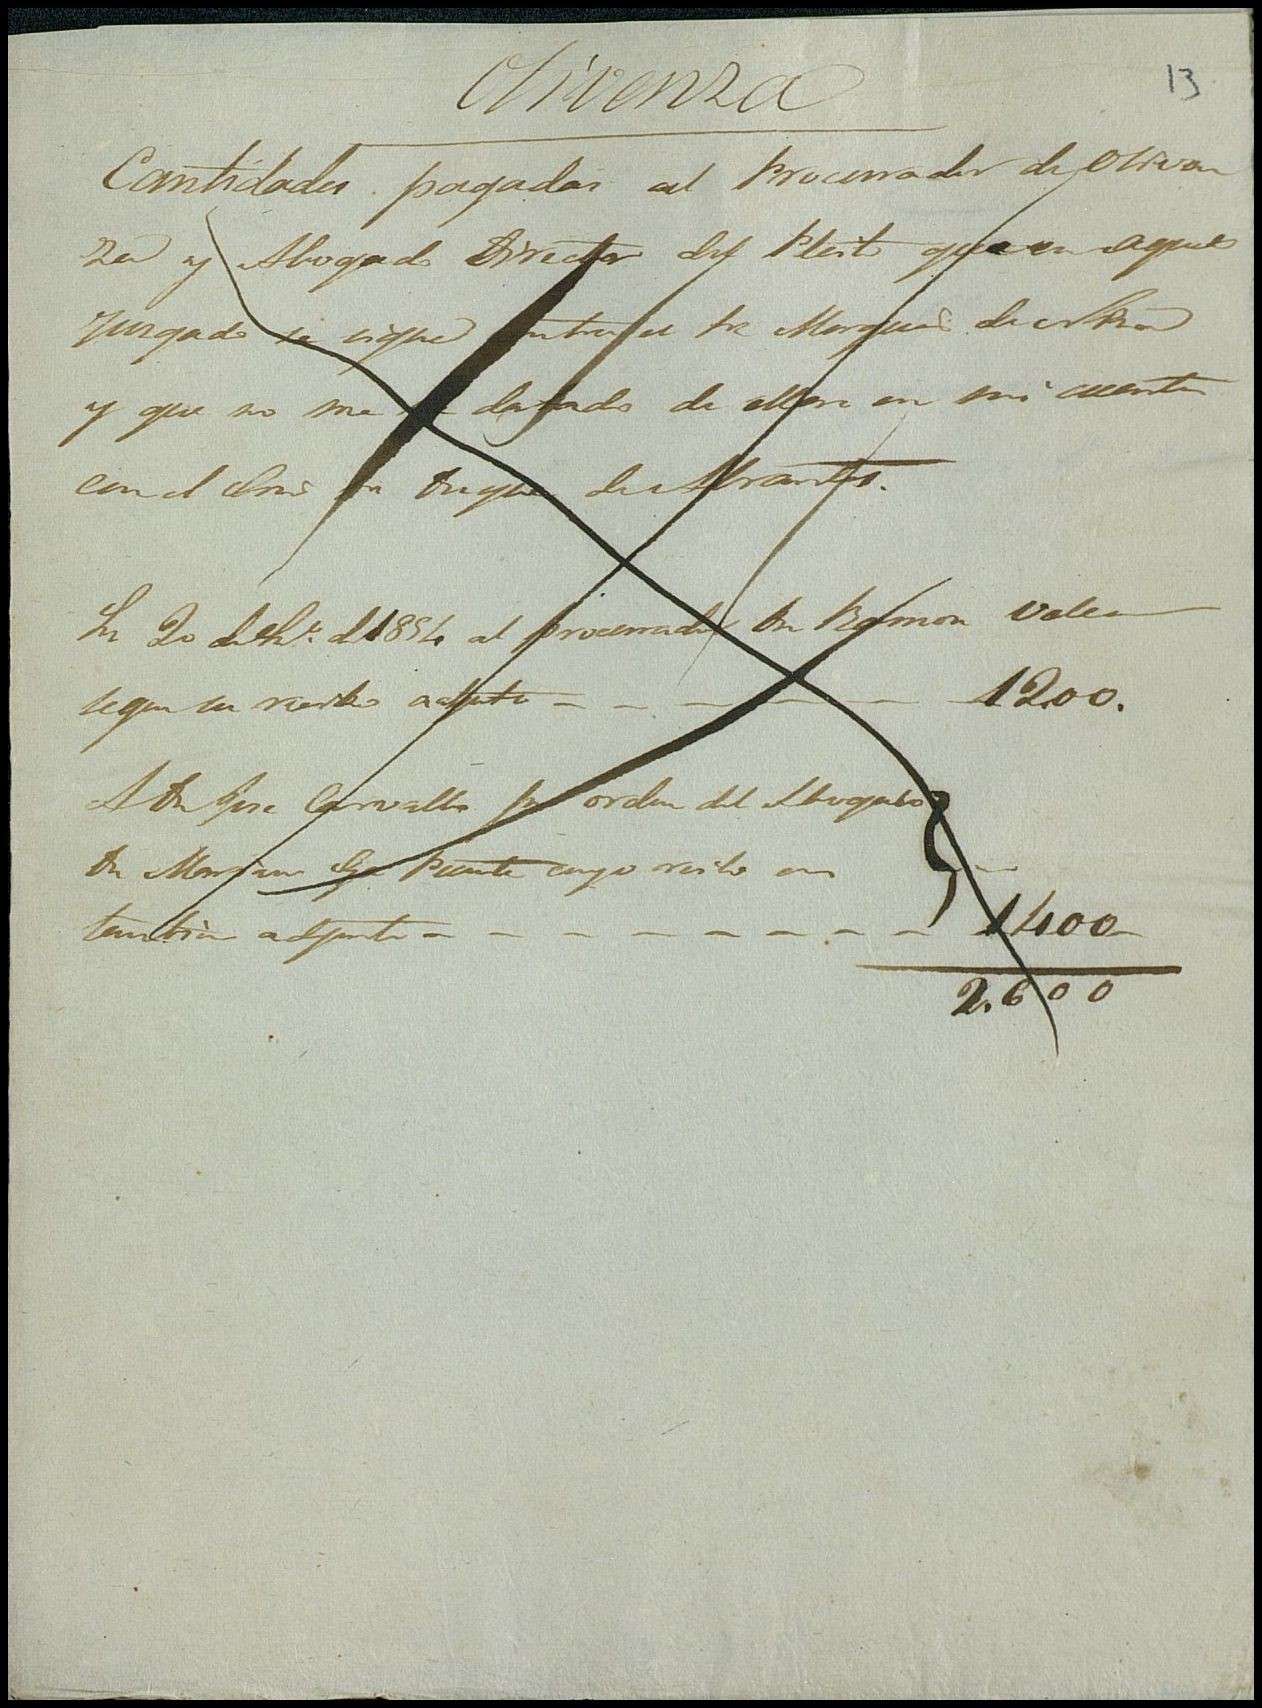 Olivenza
13
Cantidades pagadas al Procurador de Oliven
za y Abogado Director del Pleito que en aquel
Juzgado se sigue contra el Sr Marques de
y que no me datado de ellas en mi cuenta
con el Duque de Abrantes.
En 20 de de 1854 al procurador Dn Ramon
segun su recibo adjunto 1200.
A Dn Jose Carvallo por orden del Abogado
Dn Mariano Puente cuyo recibo
tambien adjunto 1400
2.600